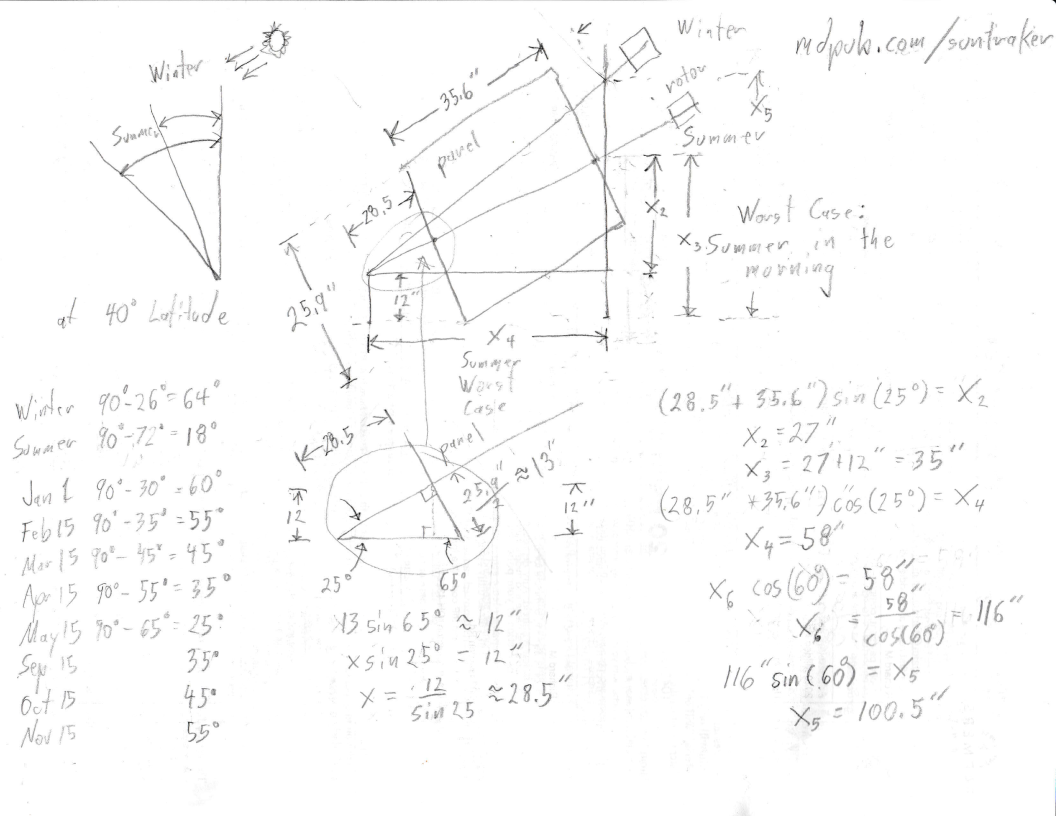 mdpub.com/suntraker
Winter
Summer
at 40° Latitude
Winter
rotor
Summer
X5
35.6"
panel
28.5
25.9"
12"
X2
X3
Worst Case:
Summer in the
morning
X4
Summer
Worst
Case
Winter 90°-26°=64°
Summer 90°-72°=18°
Jan 1 90°-30°=60°
Feb 15 90°-35°=55°
Mar 15 90°-45°=45°
Apr 15 90°-55°=35°
May 15 90°-65°=25°
Sep 15 35°
Oct 15 45°
Nov 15 55°
28.5
panel
12
25.9"/2 ≈13"
12"
25°
65°
13 sin 65° ≈ 12"
x sin 25° = 12"
x = 12/sin 25 ≈28.5"
(28.5"+ 35.6") sin(25°) = X2
X2 = 27"
X3 = 27+12" = 35"
(28.5" +35.6") cos(25°) = X4
X4 = 58"
X6 cos(60°) = 58"
X6 = 58"/cos(60°) = 116"
116" sin(60°) = X5
X5 = 100.5"